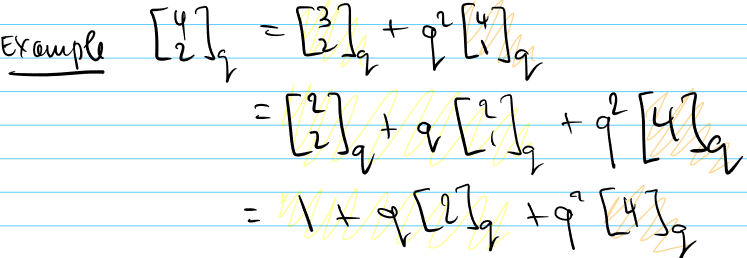 Example [4 2]_q = [3 2]_q + q^2 [4 1]_q
= [2 2]_q + q [2 1]_q + q^2 [4]_q
= 1 + q [2]_q + q^2 [4]_q